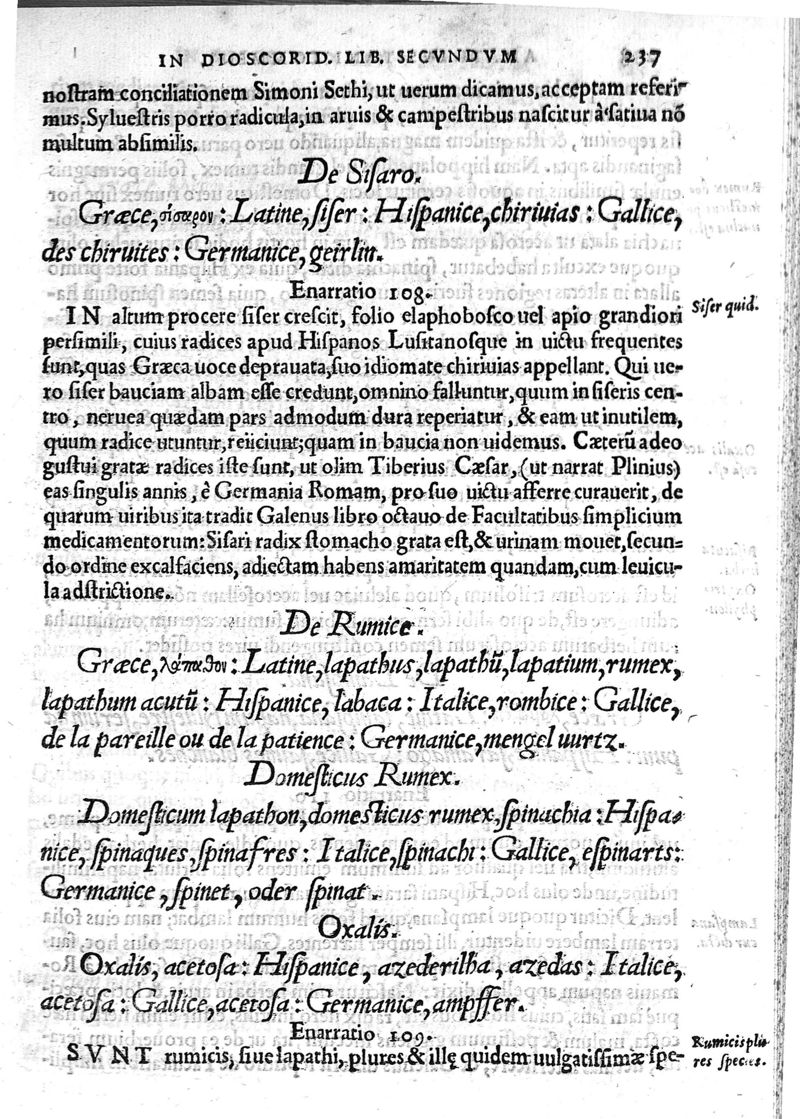 IN DIOSCORID. LIB. SECVNDVM 237
nostram conciliationem Simoni Sethi, ut uerum dicamus, acceptam referi-
mus. Syluestris porro radicula, in aruis & campestribus nascitur à satiua nō
multum absimilis.
De Sisaro.
Græce, σίσαρον : Latine, siser : Hispanice, chiriuias : Gallice,
des chiruites : Germanice, geirlin.
Enarratio 108.
IN altum procere siser crescit, folio elaphobosco uel apio grandiori
Siser quid.
persimili, cuius radices apud Hispanos Lusitanosque in uictu frequentes
sunt, quas Græca uoce deprauata, suo idiomate chiriuias appellant. Qui ue-
ro siser bauciam albam esse credunt, omnino falluntur, quum in siseris cen-
tro, neruea quædam pars admodum dura reperiatur, & eam ut inutilem,
quum radice utuntur, reiiciunt; quam in baucia non uidemus. Cæterū adeo
gustui gratæ radices iste sunt, ut olim Tiberius Cæsar, (ut narrat Plinius)
eas singulis annis, è Germania Romam, pro suo uictu afferre curauerit, de
quarum uiribus ita tradit Galenus libro octauo de Facultatibus simplicium
medicamentorum: Sisari radix stomacho grata est, & urinam mouet, secun-
do ordine excalfaciens, adiectam habens amaritatem quandam, cum leuicu-
la adstrictione.
De Rumice.
Græce, λάπαθον : Latine, lapathus, lapathū, lapatium, rumex,
lapathum acutū : Hispanice, labaca : Italice, rombice : Gallice,
de la pareille ou de la patience : Germanice, mengel uurtz.
Domesticus Rumex.
Domesticum lapathon, domesticus rumex, spinachia : Hispa-
nice, spinaques, spinafres : Italice, spinachi : Gallice, espinarts:
Germanice, spinet, oder spinat.
Oxalis.
Oxalis, acetosa : Hispanice, azederilha, azedas : Italice,
acetosa : Gallice, acetosa : Germanice, ampffer.
Enarratio 109.
SVNT rumicis, siue lapathi, plures & illę quidem uulgatissimæ spe-
Rumicis plu
res species.